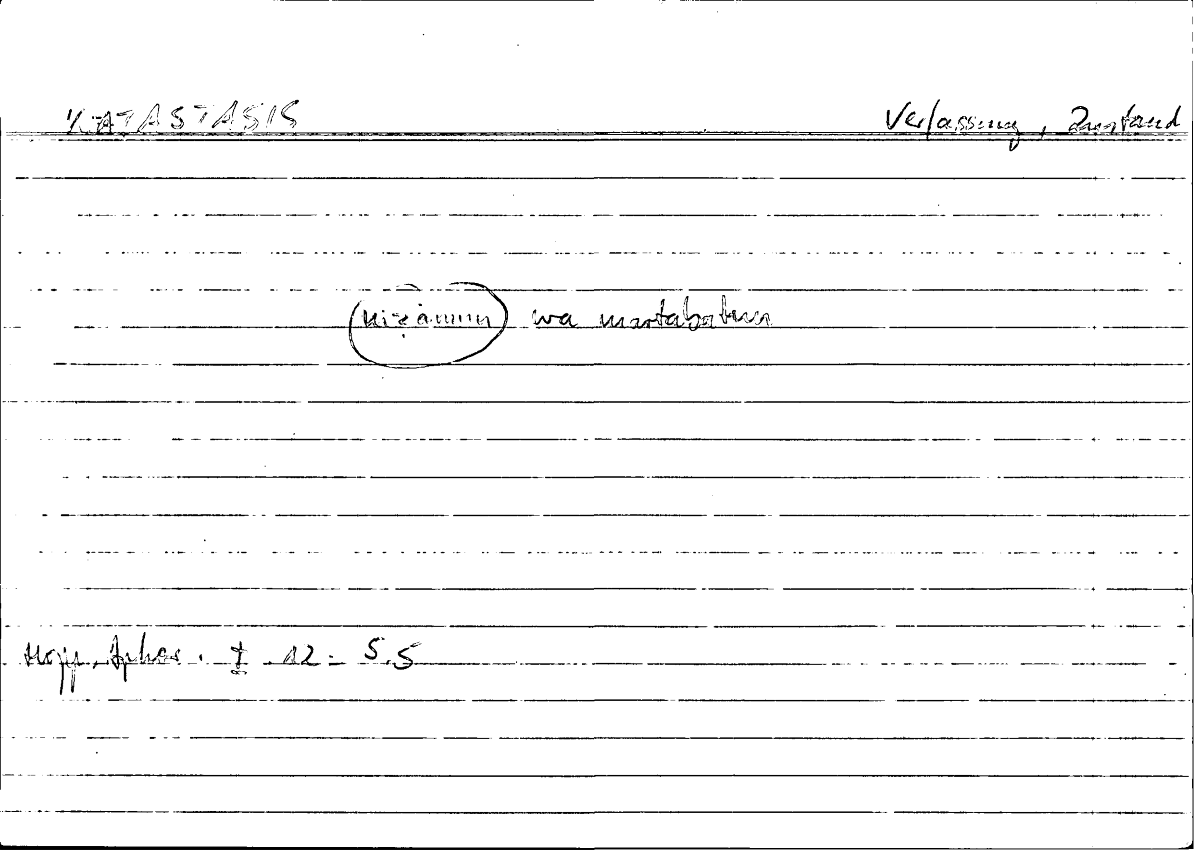 KATASTASIS Verfassung, Zustand
niẓāmun wa martabatun
Hipp. Aphor. I 12 = 5.5